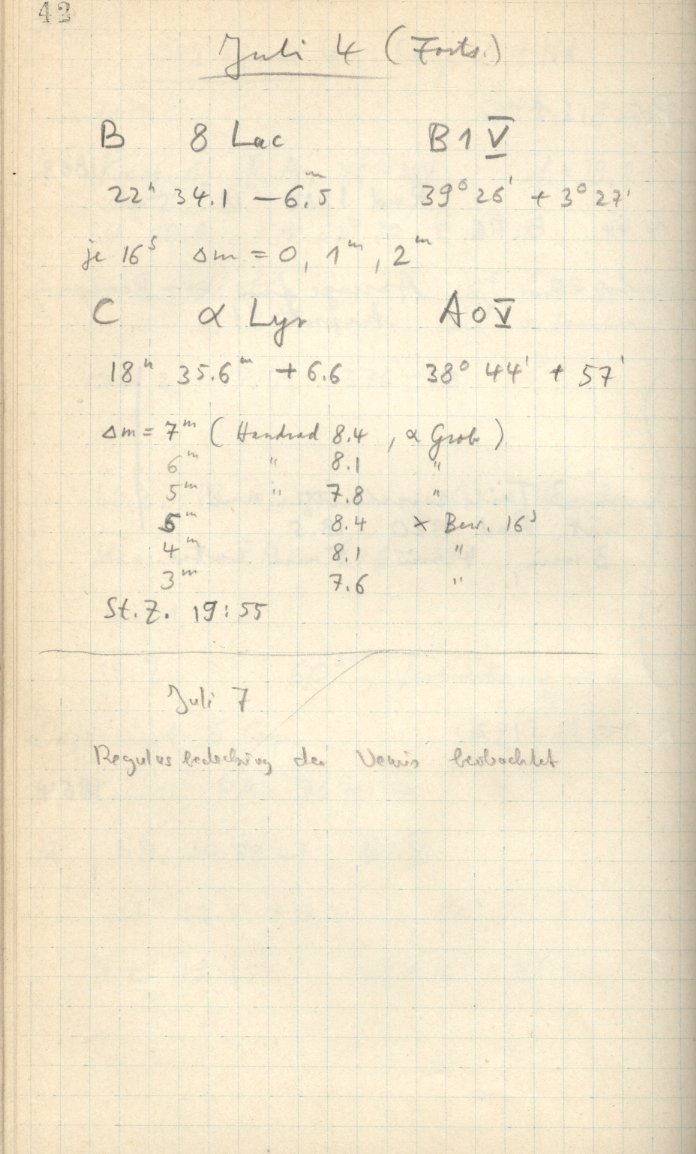 42
Juli 4 (Forts.)
B 8 Lac B1 V
22ʰ 34.1 – 6.5ᵐ 39° 26' + 3° 27'
je 16ˢ Δm = 0, 1ᵐ, 2ᵐ
C α Lyr A0 V
18ʰ 35.6ᵐ + 6.6 38° 44' + 57'
Δm = 7ᵐ (Handrad 8.4, α Grob)
6ᵐ " 8.1 "
5ᵐ " 7.8 "
5ᵐ 8.4 × Bew. 16ˢ
4ᵐ 8.1 "
3ᵐ 7.6 "
St.Z. 19:55
Juli 7
Regulusbedeckung der Venus beobachtet